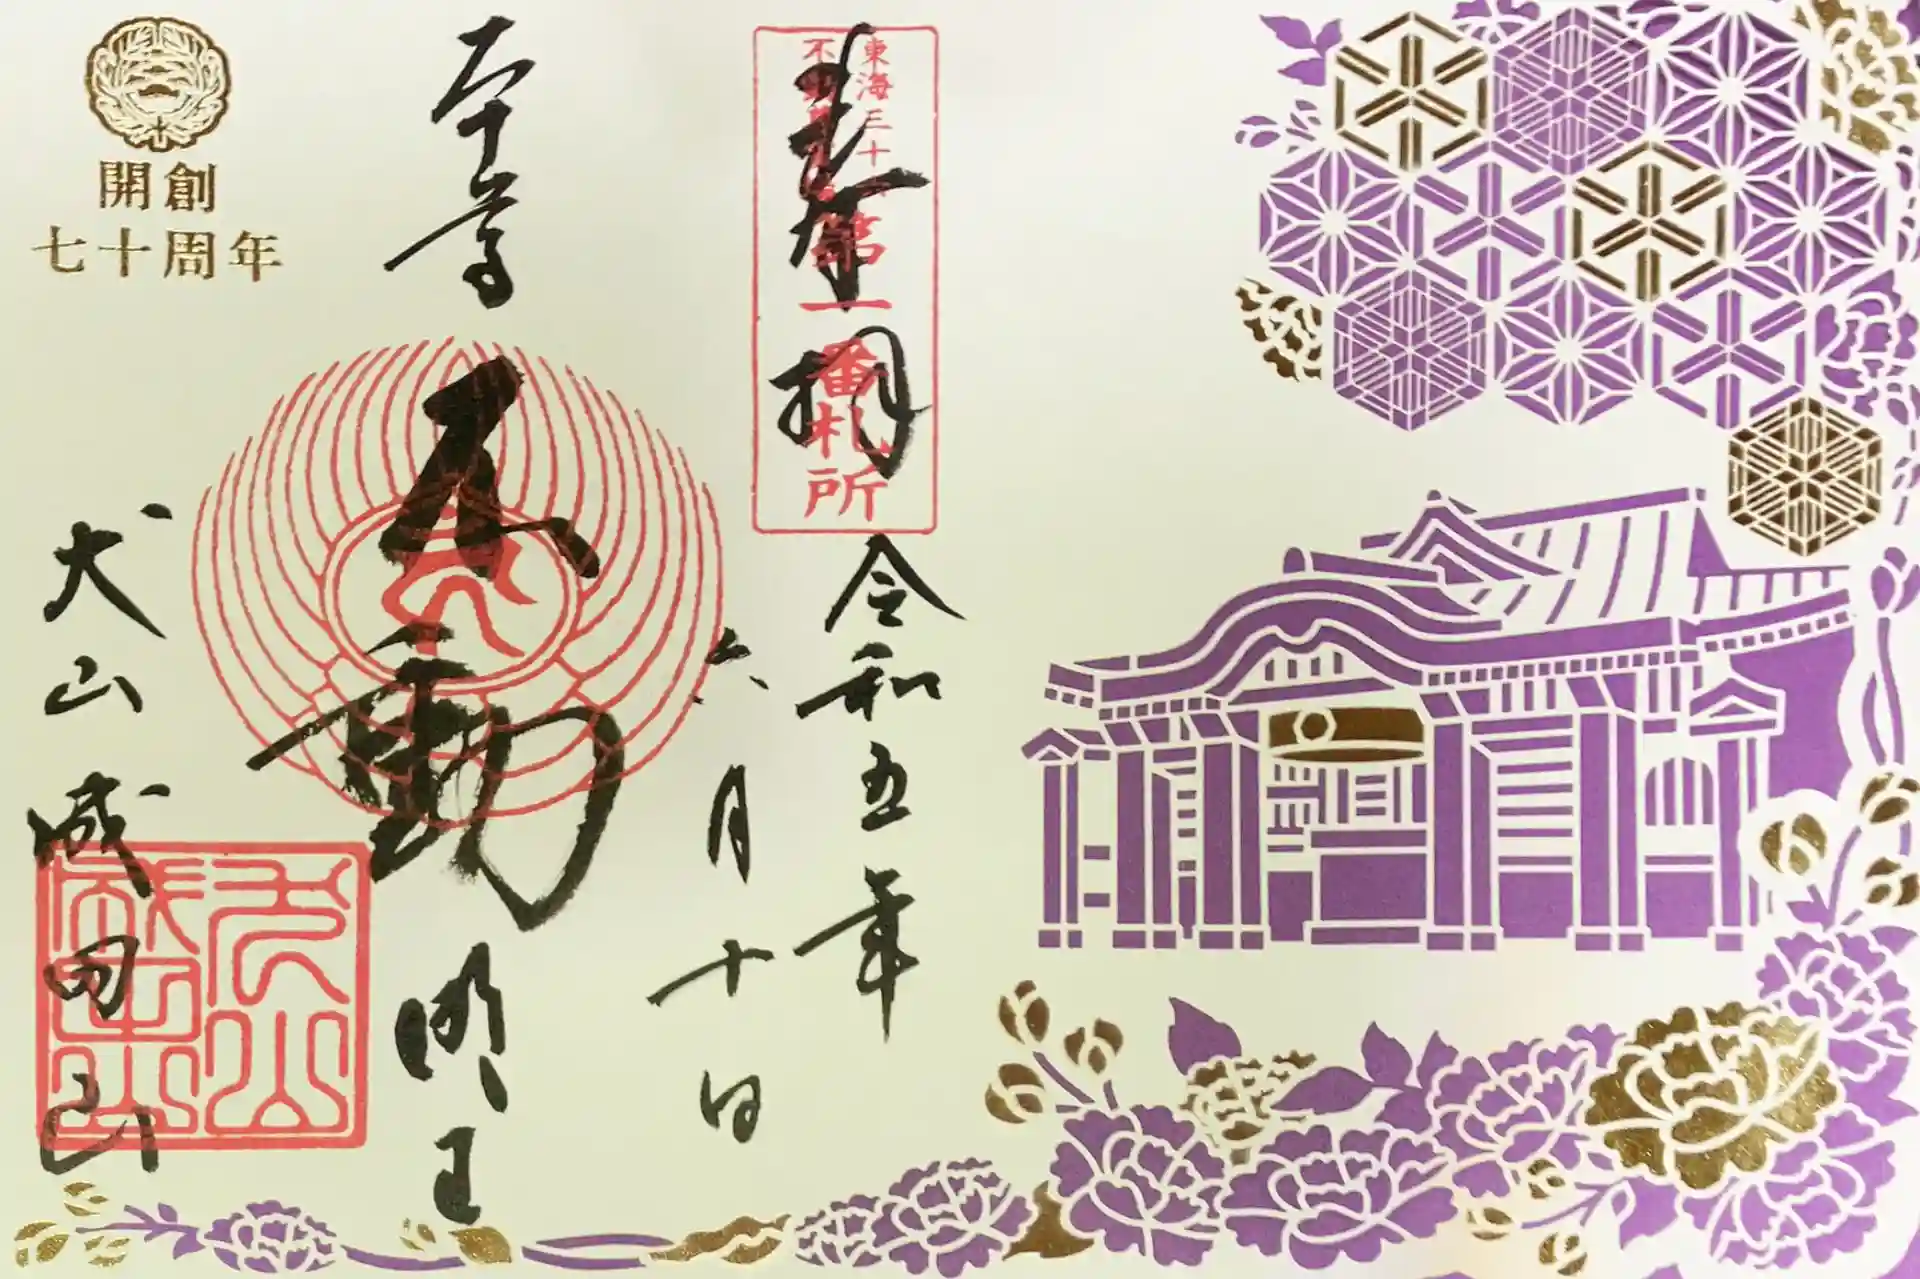 奉拝
東海三十六
不動尊
第一番札所
令和五年
六月十日
本尊
不動明王
犬山成田山
開創
七十周年
犬山
成田山